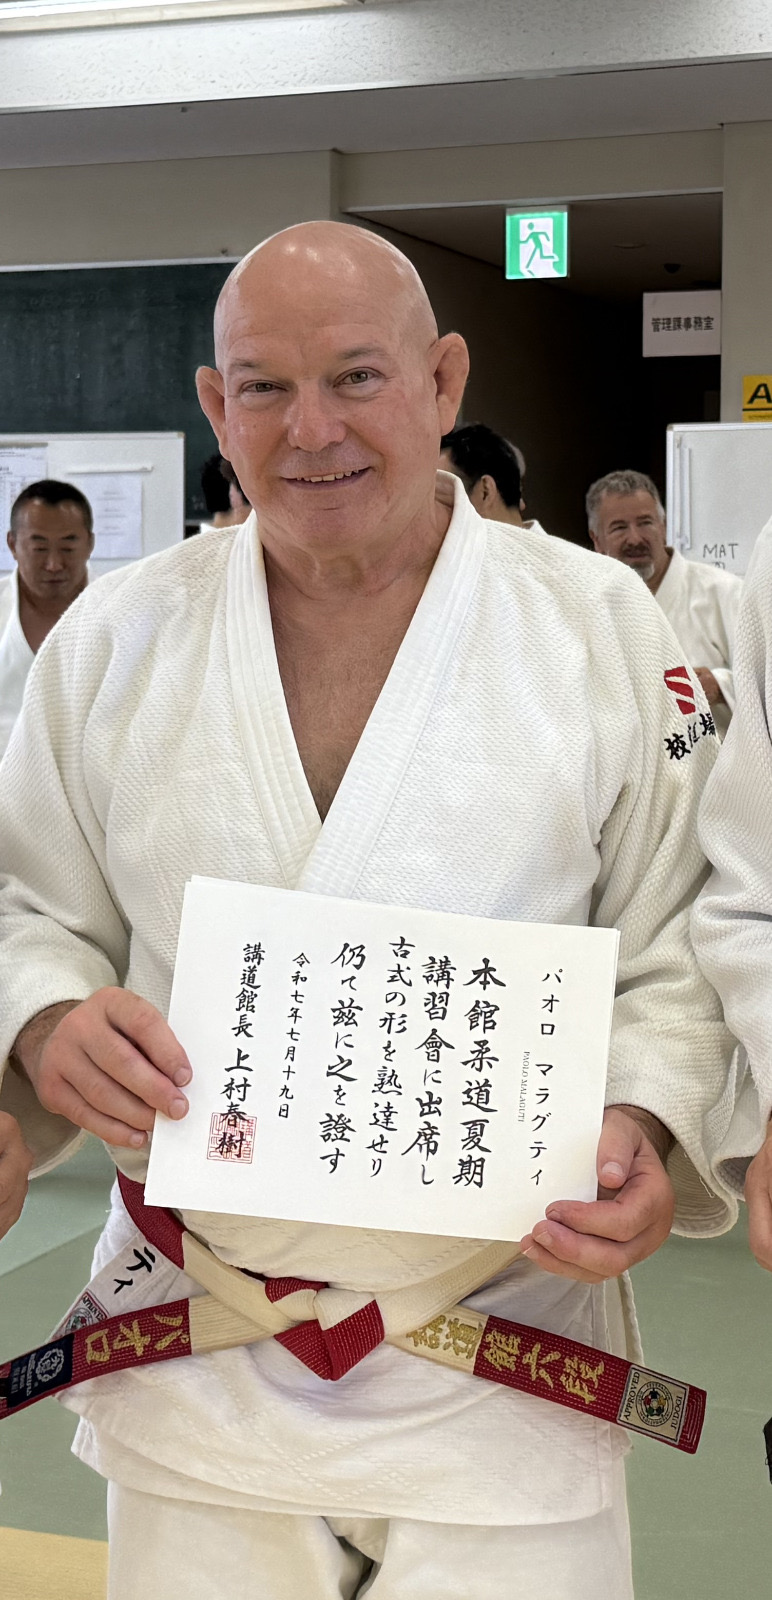 管理課事務室
A
MAT
パオロ マラグティ
PAOLO MALAGUTI
本館柔道夏期
講習會に出席し
古式の形を熟達せり
仍て兹に之を證す
令和七年七月十九日
講道館長 上村春樹
ティ
パオロ
講道館六段
APPROVED
JUDOGI